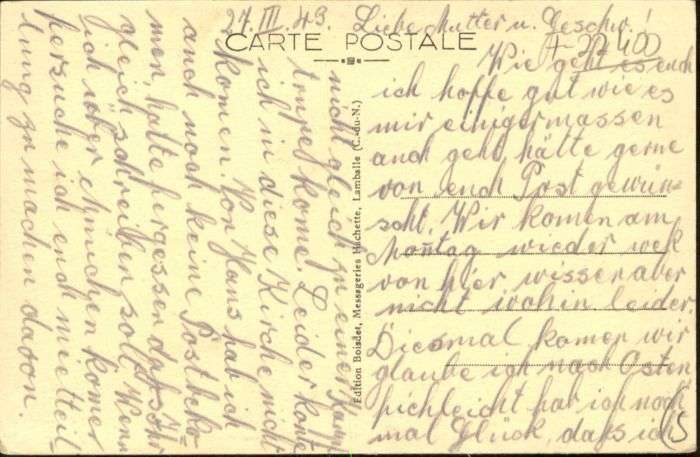 27.III.43. Liebe Mutter u. Geschw.!
CARTE POSTALE
+ 22400
Wie geht es euch
ich hoffe gut wie es
mir einigermassen
auch geht, hätte gerne
von euch Post gewün-
scht. Wir komen am
Montag wieder wek
von hier wissen aber
nicht wohin leider.
Diesmal komen wir
glaube ich nach Osten
fichleicht hab ich noch
mal Glück, dass ich
nicht gleich zu einer
komme. Leider konte
ich in diese Kirche nicht
komen. Von Hans hab ich
auch noch keine Post beko-
men, hatte fergessen dass Ihr
gleich schreiben solt. Wenn
ich rüber komen
fersuche ich euch mietteil-
lung zu machen davon.
Edition Boisdet, Messageries Hachette, Lamballe (C.-du-N.)